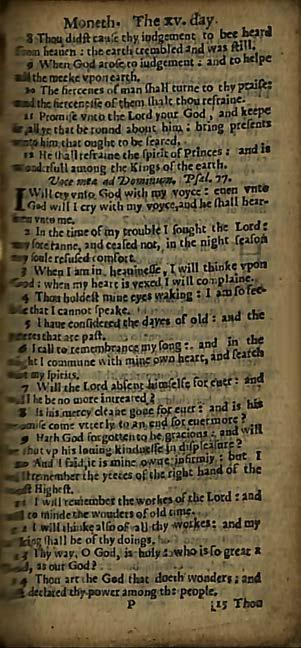 Moneth. The xv. day.
8 Thou didst cause thy iudgement to bee heard
from heauen : the earth trembled and was still.
9 When God arose to iudgement : and to helpe
all the meeke vpon earth.
10 The fiercenes of man shall turne to thy praise:
and the fiercenesse of them shalt thou refraine.
11 Promise vnto the Lord your God, and keepe
it, all ye that be round about him : bring presents
vnto him that ought to be feared.
12 He shall refraine the spirit of Princes : and is
wonderfull among the Kings of the earth.
Voce mea ad Dominum. Psal. 77.
I Will cry vnto God with my voyce : euen vnto
God will I cry with my voyce, and he shall hear-
ken vnto me.
2 In the time of my trouble I sought the Lord:
my sore ranne, and ceased not, in the night season
my soule refused comfort.
3 When I am in heauinesse, I will thinke vpon
God : when my heart is vexed I will complaine.
4 Thou holdest mine eyes waking : I am so fee-
ble that I cannot speake.
5 I haue considered the dayes of old : and the
yeeres that are past.
6 I call to remembrance my song : and in the
night I commune with mine own heart, and search
out my spirits.
7 Will the Lord absent himselfe for euer : and
will he be no more intreated ?
8 Is his mercy cleane gone for euer : and is his
promise come vtterly to an end for euermore ?
9 Hath God forgotten to be gracious : and will
he shut vp his louing kindnesse in displeasure ?
10 And I said, it is mine owne infirmity : but I
will remember the yeeres of the right hand of the
most Highest.
11 I will remember the workes of the Lord : and
call to minde the wonders of old time.
12 I will thinke also of all thy workes : and my
talking shall be of thy doings.
13 Thy way, O God, is holy : who is so great a
God, as our God ?
14 Thou art the God that doeth wonders : and
hast declared thy power among the people.
P 15 Thou